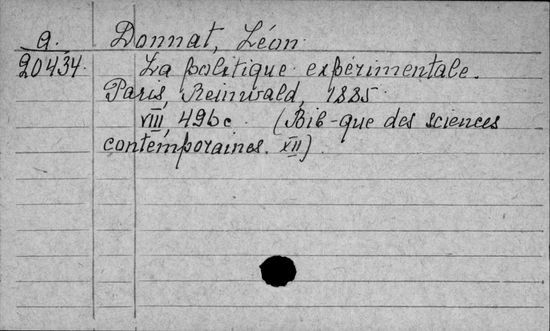 a.
20434.
Donnat, Léon.
La politique expérimentale.
Paris, Reinwald, 1885.
VIII, 496 c. (Bib-que des sciences
contemporaines. XII)